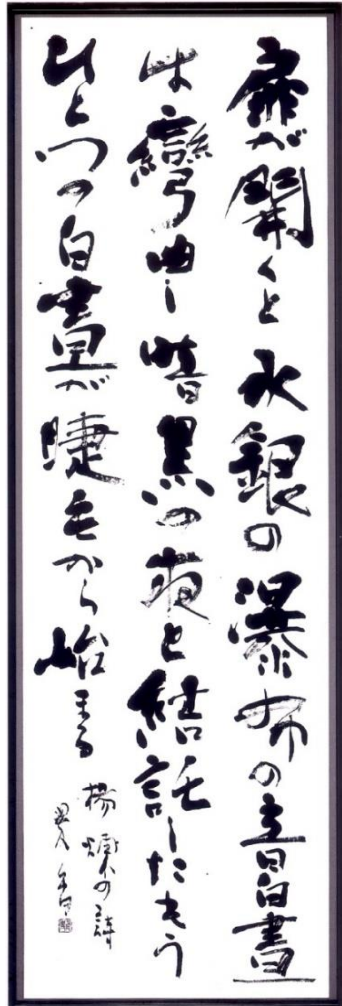 扉が開くと水銀の瀑布の音白晝
は彎曲し暗黒の夜と結託したもう
ひとつの白晝が睫毛から始まる
楊煉の詩